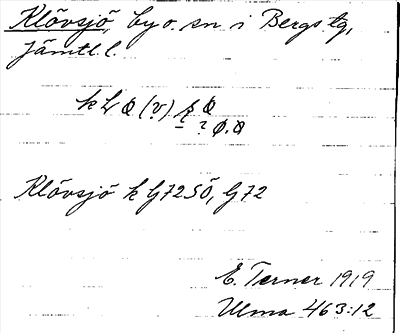 Klövsjö, by o. sn i Bergs tg,
Jämtl. l.
Klövsjö k G72 SÖ, G72
E. Terner 1919
Ulma 463:12